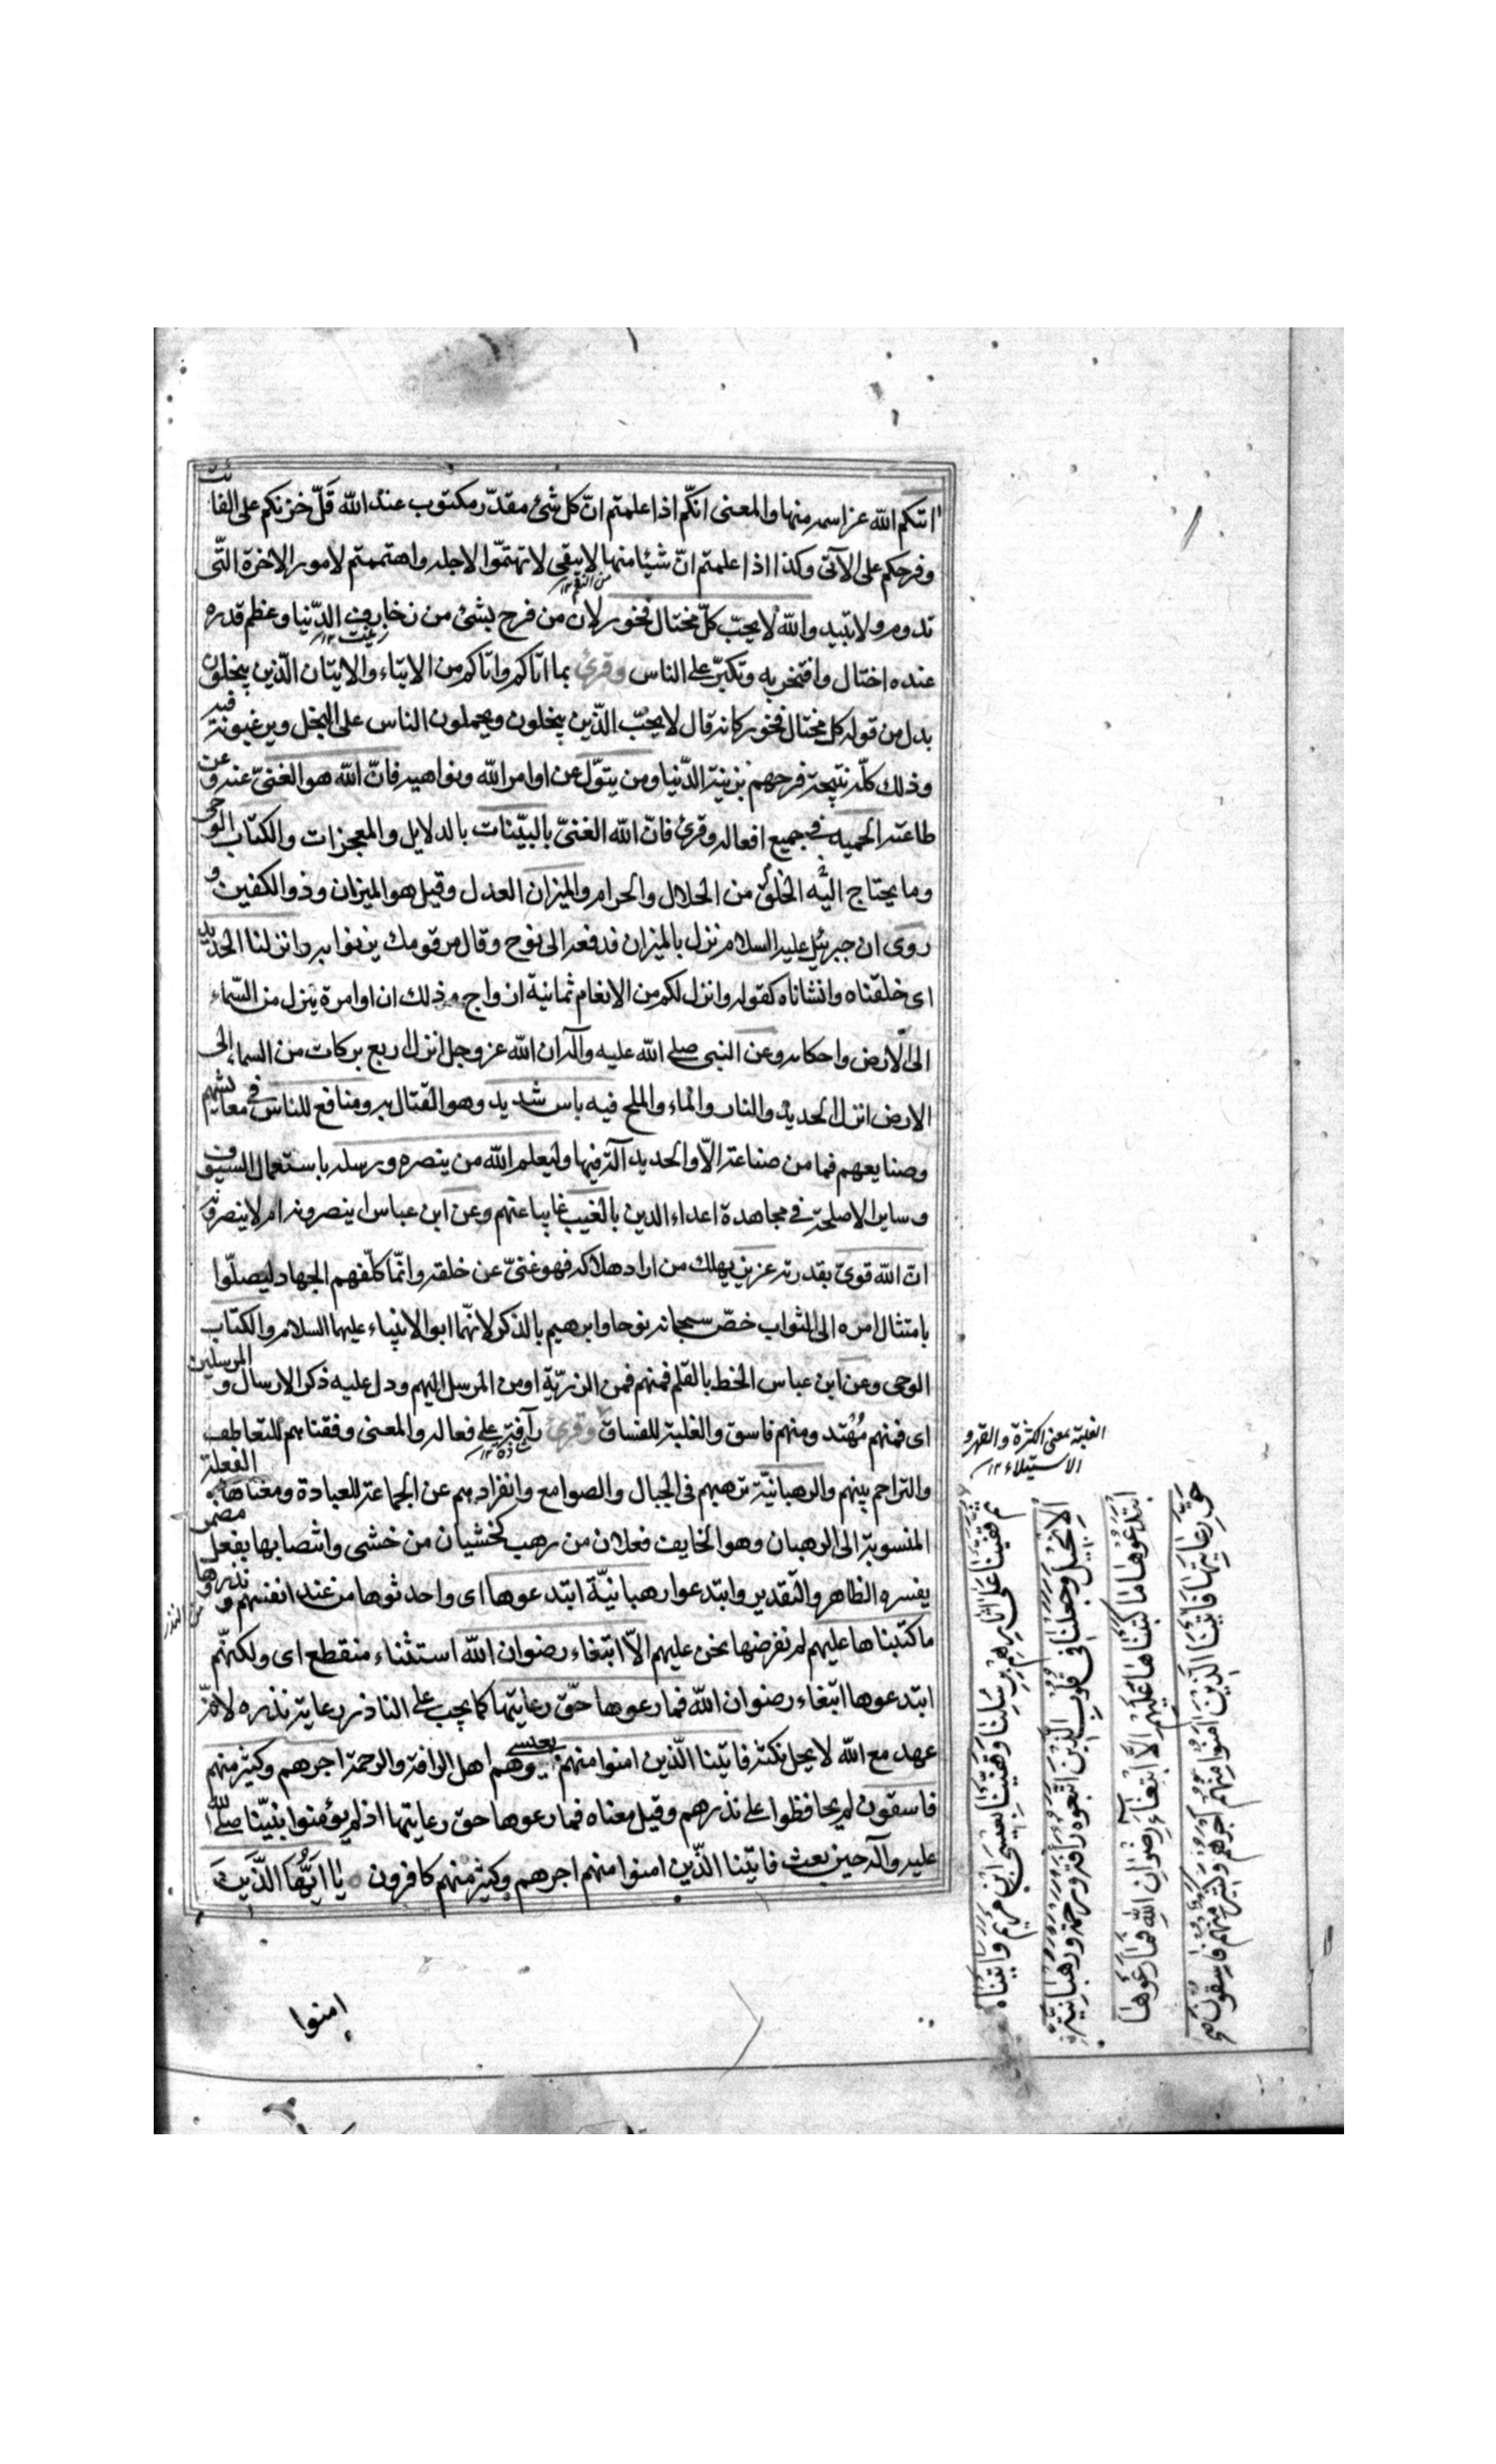 اتيكم الله عز اسمه منها والمعنى انكّم اذا علمتم انّ كل شئ مقدّر مكتوب عند الله قَلّ حزنكم على الفائت
وفرحكم على الآتى وكذا اذا علمتم انّ شيئا منها لا يبقى لا تهتمّوا لاجله واهتممتم لامور الاخرة التّى
تدوم ولا تبيد والله لا يحبّ كلّ مختال فخور لان من فرح بشئ من زخارف الدّنيا وعظم قدره
عنده اختال وافتخر به وتكبّر على الناس وقرئ بما اتاكم واتاكم من الايتاء والاتيان الّذين يبخلون
بدل من قوله كل مختال فخور كانه قال لا يحبّ الذّين يبخلون ويحملون الناس على البخل ويرغبونه فيه
وذلك كلّه نتيجة فرحهم بزينة الدّنيا ومن يتوّل عن اوامر الله ونواهيه فانّ الله هو الغنىّ عنه وعن
طاعته الحميد فى جميع افعاله وقرئ فانّ الله الغنىّ بالبيّنات بالدلايل والمعجزات والكتاب الوحى
وما يحتاج اليه الخلق من الحلال والحرام والميزان العدل وقيل هو الميزان وذو الكفين و
روى ان جبرئيل عليه السلام نزل بالميزان فدفعه الى نوح وقال مر قومك يزنوا به وانزلنا الحديد
اى خلقناه وانشاناه كقوله وانزل لكم من الانعام ثمانية ازواج وذلك ان اوامره ينزل من السّماء
الى الارض واحكامه وعن النبى صلى الله عليه وآله ان الله عز وجل انزل اربع بركات من السماء الى
الارض انزل الحديد والنار والماء والملح فيه باس شديد وهو القتال به ومنافع للناس فى معايشهم
وصنايعهم فما من صناعة الاّ والحديد آلة فيها وليعلم الله من ينصره ورسله باستعمال السيوف
وساير الاصلحة فى مجاهدة اعداء الدين بالغيب غايبا عنهم وعن ابن عباس ينصرونه ام لا ينصرونه
انّ الله قوىّ بقدرته عزيز يهلك من اراد هلاكه فهو غنىّ عن خلقه وانمّا كلّفهم الجهاد ليصلّوا
بامتثال امره الى الثواب خصّ سبحانه نوحا وابرهيم بالذكر لانهّما ابوا الانبياء عليهما السلام والكتاب
الوحى وعن ابن عباس الخط بالقلم فمنهم فمن الذريّة او من المرسل اليهم ودل عليه ذكر الارسال و المرسلين
اى فمنهم مُهتد ومنهم فاسق والغلبة للفساق وقرئ رآفة على فعالة والمعنى وفقناهم للتعاطف
والتراحم بينهم والرهبانيّة ترهبهم فى الجبال والصوامع وانفرادهم عن الجماعة للعبادة ومعناها الفعلة
المنسوبة الى الرهبان وهو الخايف فعلان من رهب كخشيان من خشى وانتصابها بفعل مضمر
يفسره الظاهر والتقدير وابتدعوا رهبانيّة ابتدعوها اى واحدثوها من عند انفسهم و نذروها
ما كتبناها عليهم لم نفرضها نحن عليهم الاّ ابتغاء رضوان الله استثناء منقطع اى ولكنهّم
ابتدعوها ابتغاء رضوان الله فما رعوها حقّ رعايتها كما يجب على الناذر رعاية نذره لانّه
عهد مع الله لا يحل نكثه فاتينا الّذين امنوا منهم بعيسى وهم اهل الرافة والرحمة اجرهم وكثير منهم
فاسقون لم يحافظوا على نذرهم وقيل معناه فما رعوها حق رعايتها اذ لم يؤمنوا بنبيّنا صلى الله
عليه وآله حين بعث فاتينا الذّين امنوا منهم اجرهم وكثير منهم كافرون يا ايّها الذّين
امنوا
الغلبة بمعنى الكثرة والقهر و
الاستيلاء ١٢
ثم قفينا على اثارهم برسلنا وقفينا بعيسى ابن مريم واتيناه
الانجيل وجعلنا فى قلوب الذين اتبعوه رافة ورحمة ورهبانية
ابتدعوها ما كتبناها عليهم الا ابتغاء رضوان الله فما رعوها
حق رعايتها فاتينا الذين امنوا منهم اجرهم وكثير منهم فاسقون